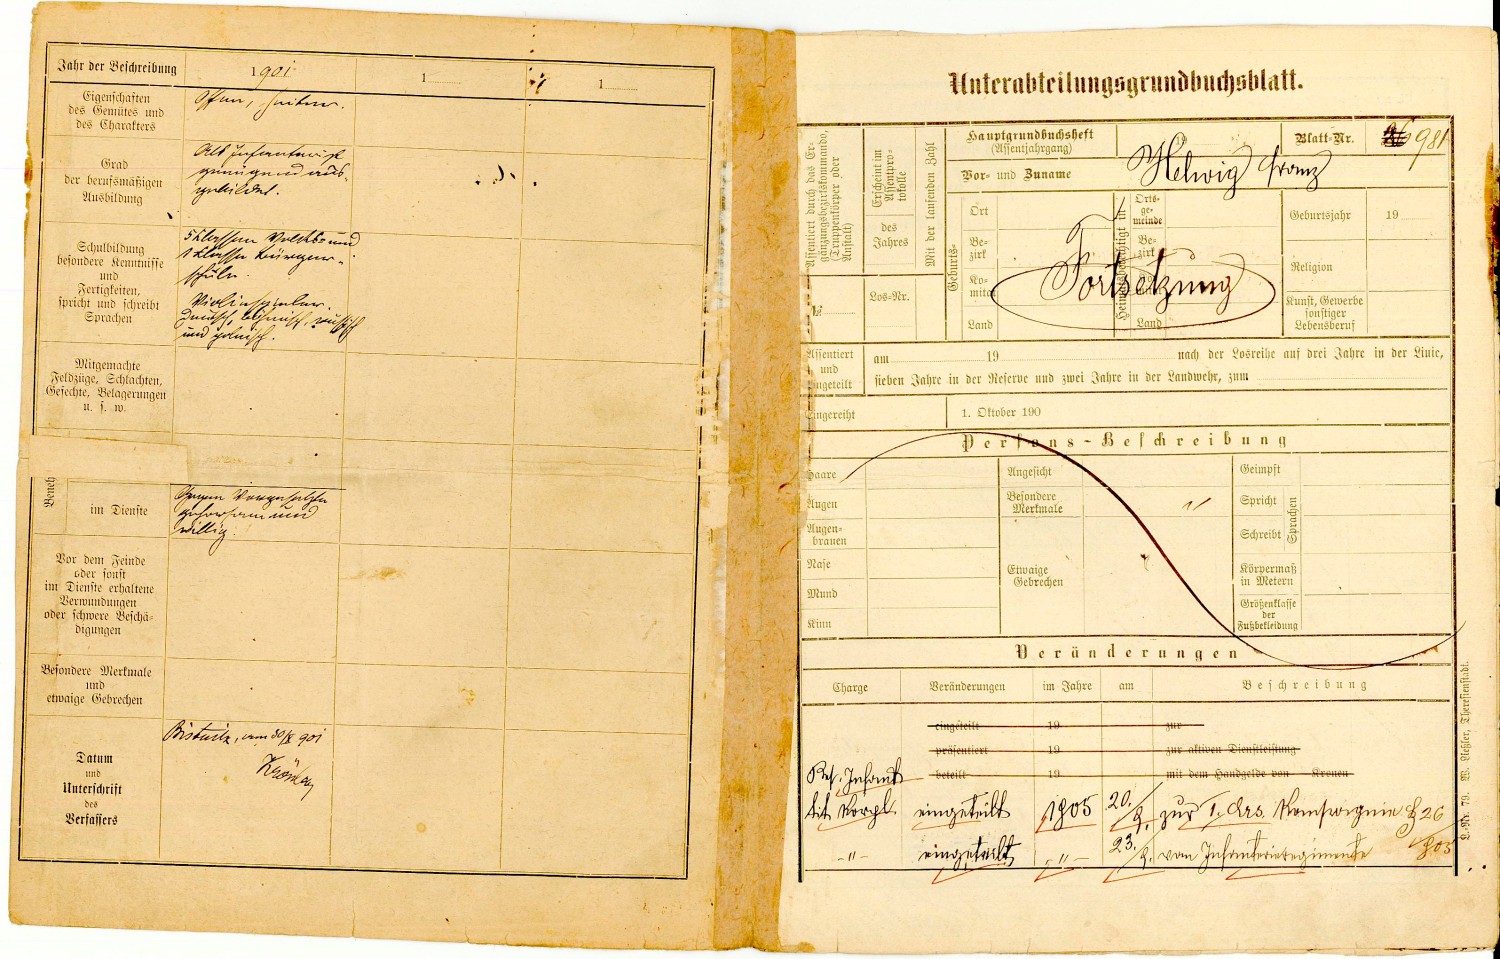 Jahr der Beschreibung 1901 1 1
Eigenschaften
des Gemütes und
des Charakters
Offen, heiter.
Grad
der berufsmäßigen
Ausbildung
Als Infanterist
genügend aus-
gebildet.
Schulbildung
besondere Kenntnisse
und
Fertigkeiten,
spricht und schreibt
Sprachen
5 Klassen Volks- und
1 Klasse Bürger-
schule.
Violinspieler.
Deutsch, böhmisch, russisch
und polnisch.
Mitgemachte
Feldzüge, Schlachten,
Gefechte, Belagerungen
u. s. w.
Beneh
im Dienste
Gegen Vorgesetzte
gehorsam und
willig.
Vor dem Feinde
oder sonst
im Dienste erhaltene
Verwundungen
oder schwere Beschä-
digungen
Besondere Merkmale
und
etwaige Gebrechen
Datum
und
Unterschrift
des
Verfassers
am 30/X 901
Unterabteilungsgrundbuchsblatt.
Assentiert durch das Er-
gänzungsbezirkskommando,
(Truppenkörper oder
Anstalt)
Erscheint im
Assentpro-
tokolle
des
Jahres
Mit der laufenden Zahl
Los-Nr.
Hauptgrundbuchsheft
(Assentjahrgang)
19
Blatt-Nr. 26 981
Vor- und Zuname Helwig Franz
Geburts-
Ort
Be-
zirk
Ko-
mitat
Land
Heimatsberechtigt in
Orts-
ge-
meinde
Be-
zirk
Land
Fortsetzung
Geburtsjahr 19
Religion
Kunst, Gewerbe
sonstiger
Lebensberuf
Assentiert
und
eingeteilt
am 19 nach der Losreihe auf drei Jahre in der Linie,
sieben Jahre in der Reserve und zwei Jahre in der Landwehr, zum
Eingereiht 1. Oktober 190
Persons-Beschreibung
Haare
Augen
Augen-
brauen
Nase
Mund
Kinn
Angesicht
Besondere
Merkmale
Etwaige
Gebrechen
Geimpft
Spricht
Schreibt
Sprachen
Körpermaß
in Metern
Größenklasse
der
Fußbekleidung
Veränderungen
Charge Veränderungen im Jahre am Beschreibung
eingeteilt 19 zur
präsentiert 19 zur aktiven Dienstleistung
Res. Infant. beteilt 19 mit dem Handgelde von Kronen
tit Korpl. eingeteilt 1905 20./9. zur 1. Ers. Kompagnie
-"- eingeteilt -"- 23./9. vom Infanterieregimente
L.-Nr. 79. W. Ließler, Theresienstadt.